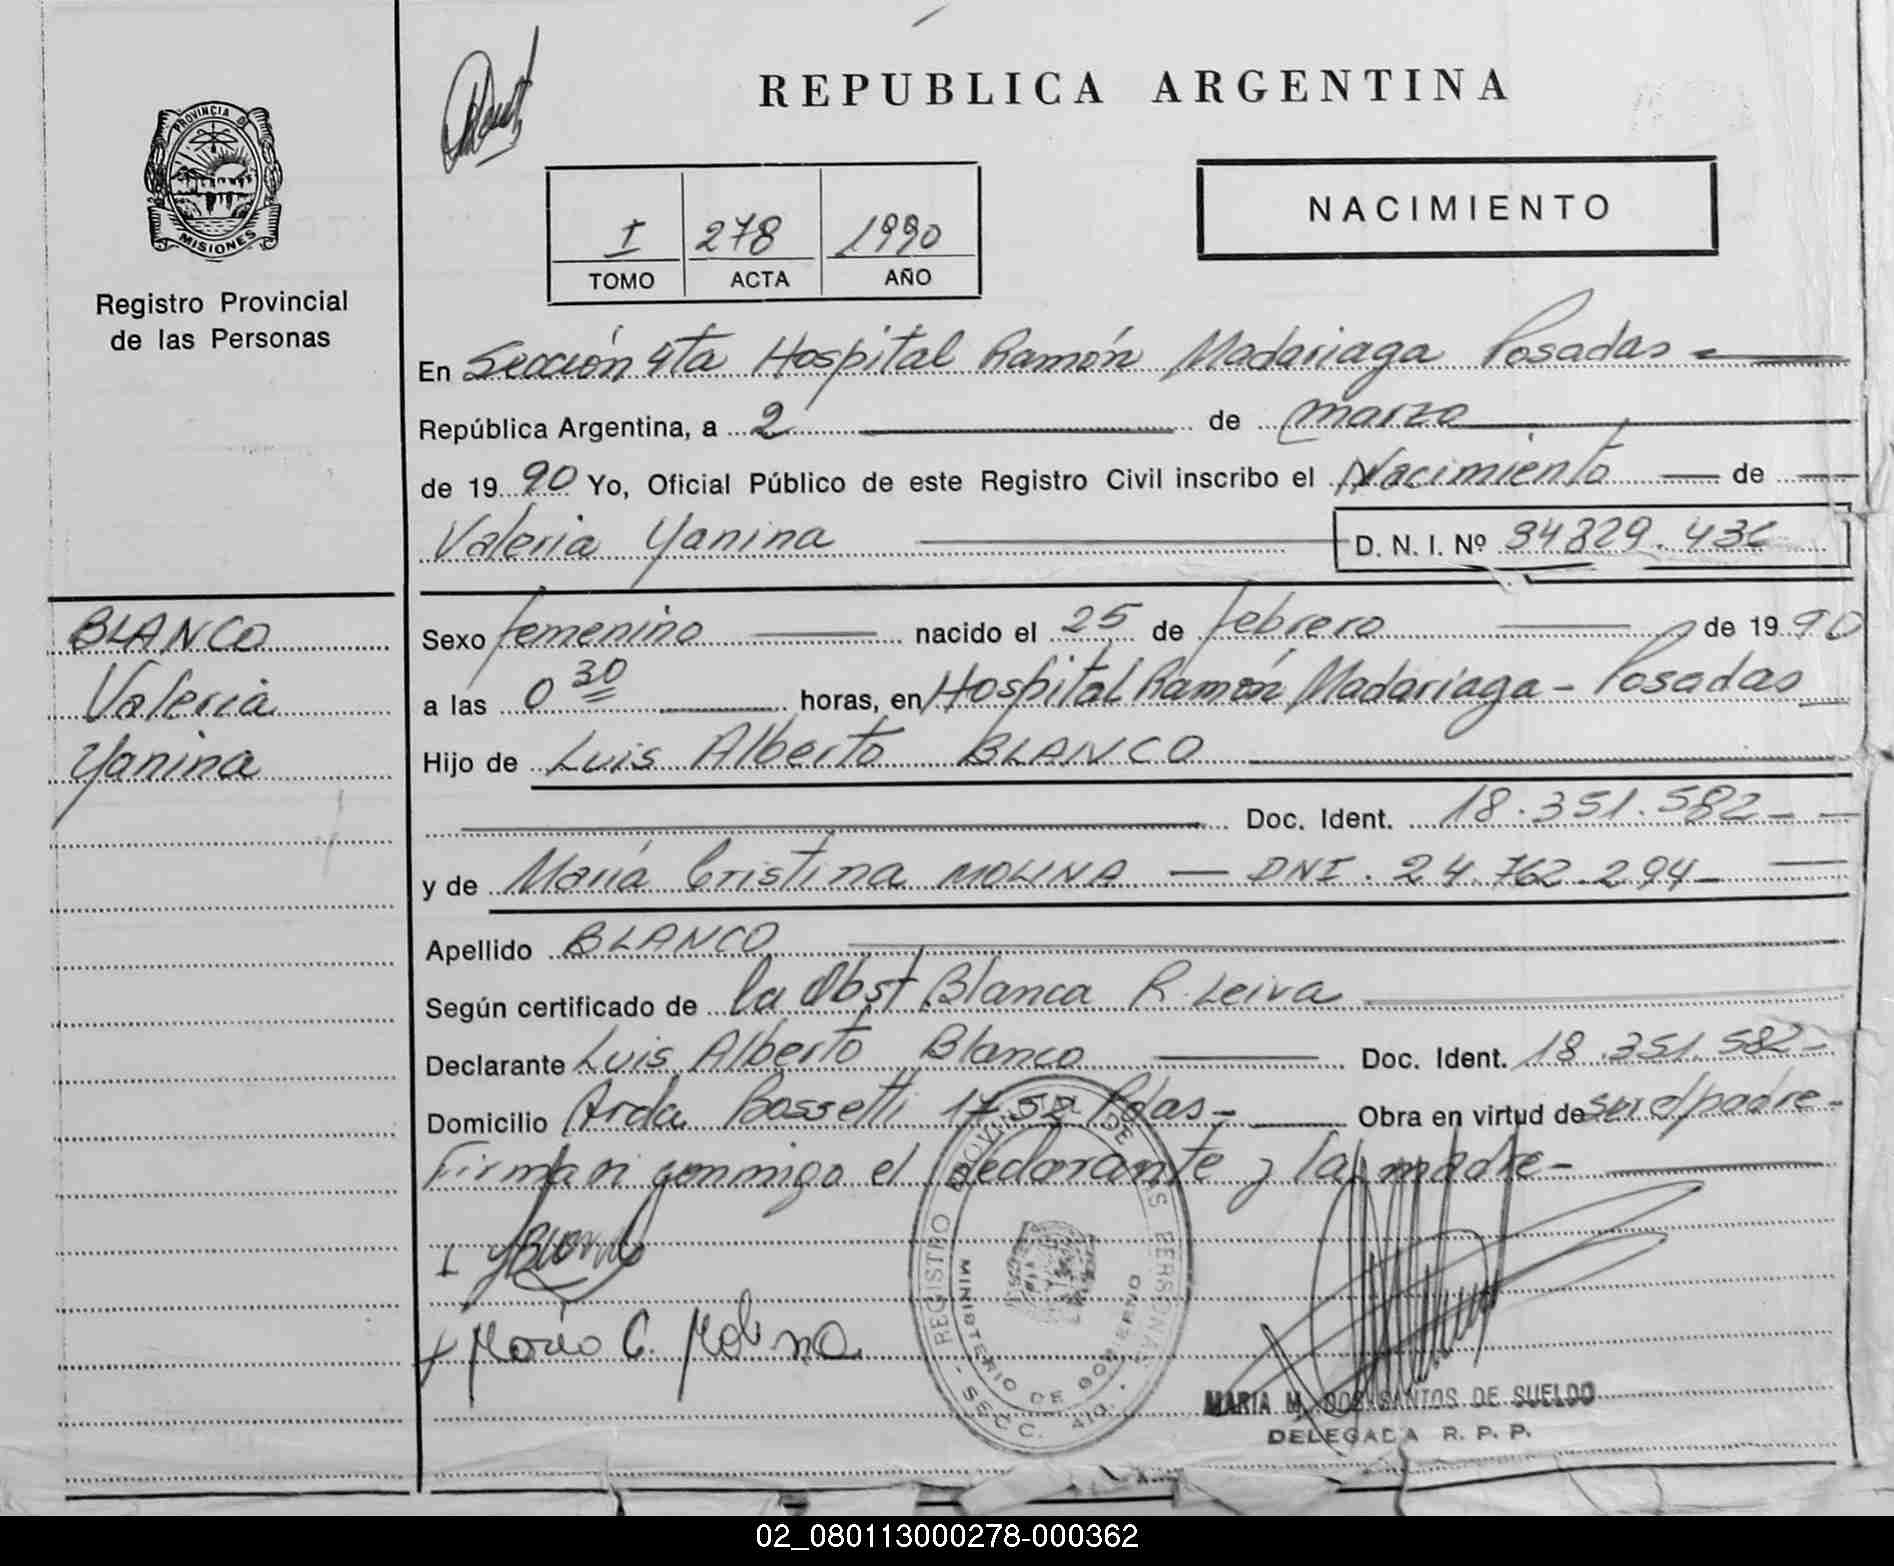 REPUBLICA ARGENTINA
PROVINCIA D
MISIONES
Registro Provincial
de las Personas
I 278 1990
TOMO ACTA AÑO
NACIMIENTO
En Sección 4ta Hospital Ramón Madariaga Posadas
República Argentina, a 2 de marzo
de 1990 Yo, Oficial Público de este Registro Civil inscribo el Nacimiento de
Valeria Yanina D. N. I. Nº 34829.436
BLANCO
Valeria
Yanina
Sexo femenino nacido el 25 de febrero de 1990
a las 0 30 horas, en Hospital Ramón Madariaga - Posadas
Hijo de Luis Alberto BLANCO
Doc. Ident. 18.351.582
y de María Cristina MOLINA — DNI. 24.762.294
Apellido BLANCO
Según certificado de la Obst. Blanca R. Leiva
Declarante Luis Alberto Blanco Doc. Ident. 18.351.582-
Domicilio Avda Bossetti 1752 Pdas- Obra en virtud de ser el padre-
Firman conmigo el declarante y la madre-
REGISTRO PROVINCIAL DE LAS PERSONAS
MINISTERIO DE GOBIERNO
- SECC. 4ta. -
María C. Molina
MARIA M. DOS SANTOS DE SUELDO
DELEGADA R. P. P.
02_080113000278-000362